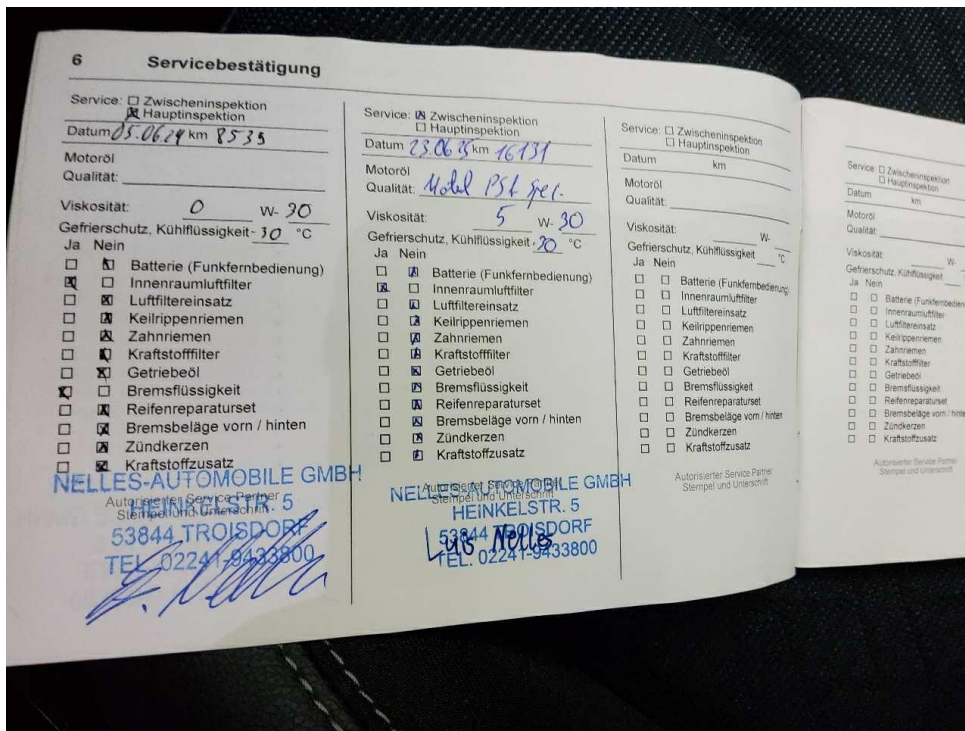 6 Servicebestätigung
Service: ☐ Zwischeninspektion
☒ Hauptinspektion
Datum 05.06.24 km 8535
Motoröl
Qualität:
Viskosität: 0 W- 30
Gefrierschutz, Kühlflüssigkeit -30 °C
Ja Nein
☐ ☒ Batterie (Funkfernbedienung)
☒ ☐ Innenraumluftfilter
☐ ☒ Luftfiltereinsatz
☐ ☒ Keilrippenriemen
☐ ☒ Zahnriemen
☐ ☒ Kraftstofffilter
☐ ☒ Getriebeöl
☒ ☐ Bremsflüssigkeit
☐ ☒ Reifenreparaturset
☐ ☒ Bremsbeläge vorn / hinten
☐ ☒ Zündkerzen
☐ ☒ Kraftstoffzusatz
Autorisierter Service Partner
Stempel und Unterschrift
NELLES-AUTOMOBILE GMBH
HEINKELSTR. 5
53844 TROISDORF
TEL. 02241-9433800
Service: ☒ Zwischeninspektion
☐ Hauptinspektion
Datum 23.06.25 km 16131
Motoröl
Qualität:
Viskosität: 5 W- 30
Gefrierschutz, Kühlflüssigkeit -30 °C
Ja Nein
☐ ☒ Batterie (Funkfernbedienung)
☒ ☐ Innenraumluftfilter
☐ ☒ Luftfiltereinsatz
☐ ☒ Keilrippenriemen
☐ ☒ Zahnriemen
☐ ☒ Kraftstofffilter
☐ ☒ Getriebeöl
☐ ☒ Bremsflüssigkeit
☐ ☒ Reifenreparaturset
☐ ☒ Bremsbeläge vorn / hinten
☐ ☒ Zündkerzen
☐ ☒ Kraftstoffzusatz
Autorisierter Service Partner
Stempel und Unterschrift
NELLES-AUTOMOBILE GMBH
HEINKELSTR. 5
53844 TROISDORF
TEL. 02241-9433800
Luis Nelles
Service: ☐ Zwischeninspektion
☐ Hauptinspektion
Datum km
Motoröl
Qualität:
Viskosität: W-
Gefrierschutz, Kühlflüssigkeit °C
Ja Nein
☐ ☐ Batterie (Funkfernbedienung)
☐ ☐ Innenraumluftfilter
☐ ☐ Luftfiltereinsatz
☐ ☐ Keilrippenriemen
☐ ☐ Zahnriemen
☐ ☐ Kraftstofffilter
☐ ☐ Getriebeöl
☐ ☐ Bremsflüssigkeit
☐ ☐ Reifenreparaturset
☐ ☐ Bremsbeläge vorn / hinten
☐ ☐ Zündkerzen
☐ ☐ Kraftstoffzusatz
Autorisierter Service Partner
Stempel und Unterschrift
Service: ☐ Zwischeninspektion
☐ Hauptinspektion
Datum km
Motoröl
Qualität:
Viskosität: W-
Gefrierschutz, Kühlflüssigkeit
Ja Nein
☐ ☐ Batterie
☐ ☐ Innenraumluftfilter
☐ ☐ Luftfiltereinsatz
☐ ☐ Keilrippenriemen
☐ ☐ Zahnriemen
☐ ☐ Kraftstofffilter
☐ ☐ Getriebeöl
☐ ☐ Bremsflüssigkeit
☐ ☐ Reifenreparaturset
☐ ☐ Bremsbeläge vorn /
☐ ☐ Zündkerzen
☐ ☐ Kraftstoffzusatz
Autorisierter Service Partner
Stempel und Unterschrift